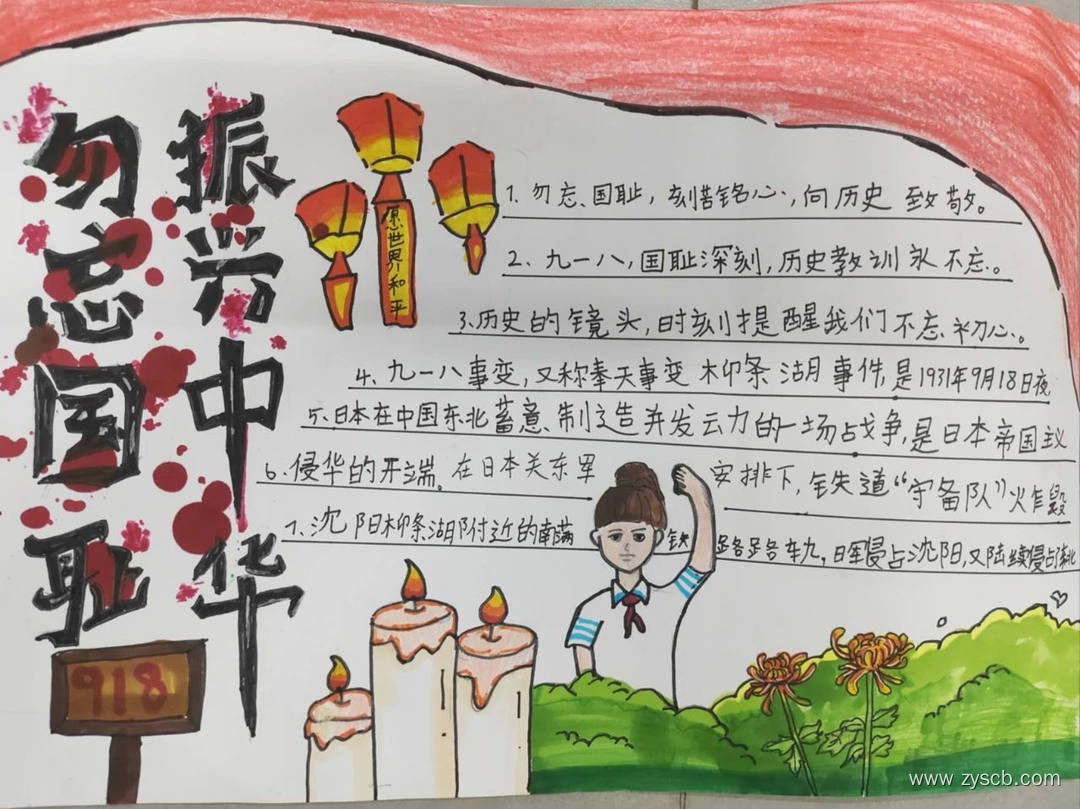 勿忘国耻
振兴中华
愿世界和平
1. 勿忘国耻，刻苦铭心，向历史致敬。
2、九一八，国耻深刻，历史教训永不忘。
3.历史的镜头，时刻提醒我们不忘初心。
4、九一八事变，又称奉天事变 柳条湖事件，是1931年9月18日夜
5、日本在中国东北蓄意制造并发动的一场战争，是日本帝国主义
6.侵华的开端。在日本关东军 安排下，铁道“守备队”火炸毁
7.沈阳柳条湖附近的南满 铁 路路轨。日军侵占沈阳，又陆续侵占东北
918
www.zyscb.com